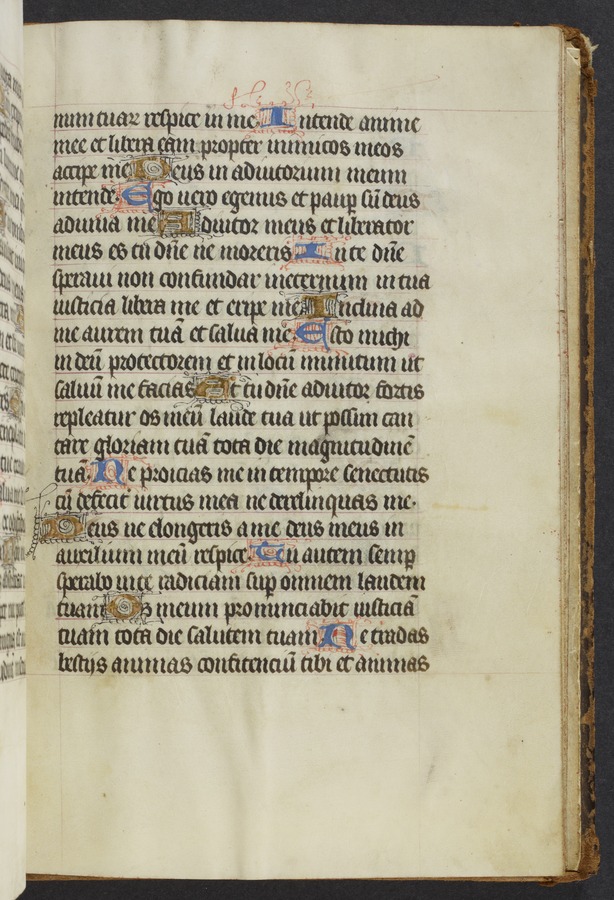 num tuaꝝ respice in me Intende anime
mee et libera eam propter inimicos meos
accipe me Deus in adiutorium meum
intende Ego uero egenus et paup sū deus
adiuua me Adiutor meus et liberator
meus es tu dn̄e ne moreris In te dn̄e
speraui non confundar ineternum in tua
iusticia libera me et eripe me Inclina ad
me aurem tuā et salua me Esto michi
in deū protectorem et in locū munitum ut
saluū me facias Et tu dn̄e adiutor fortis
repleatur os meū laude tua ut possim can
tare gloriam tuā tota die magnitudinē
tuā Ne proicias me in tempore senectutis
cū defecit uirtus mea ne derelinquas me·
Deus ne elongeris a me deus meus in
auxilium meū respice Tu autem semp
sperabo in te radiciam sup omnem laudem
tuam Os meum pronunciabit iusticiā
tuam tota die salutem tuam Ne tradas
bestijs animas confitenciū tibi et animas